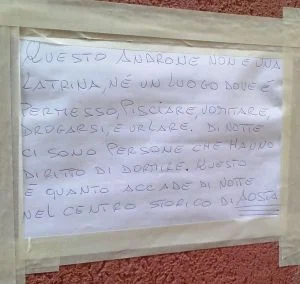 QUESTO ANDRONE NON È UNA
LATRINA, NÉ UN LUOGO DOVE È
PERMESSO, PISCIARE, VOMITARE,
DROGARSI, E URLARE. DI NOTTE
CI SONO PERSONE CHE HANNO
DIRITTO DI DORMIRE. QUESTO
È QUANTO ACCADE DI NOTTE
NEL CENTRO STORICO DI AOSTA